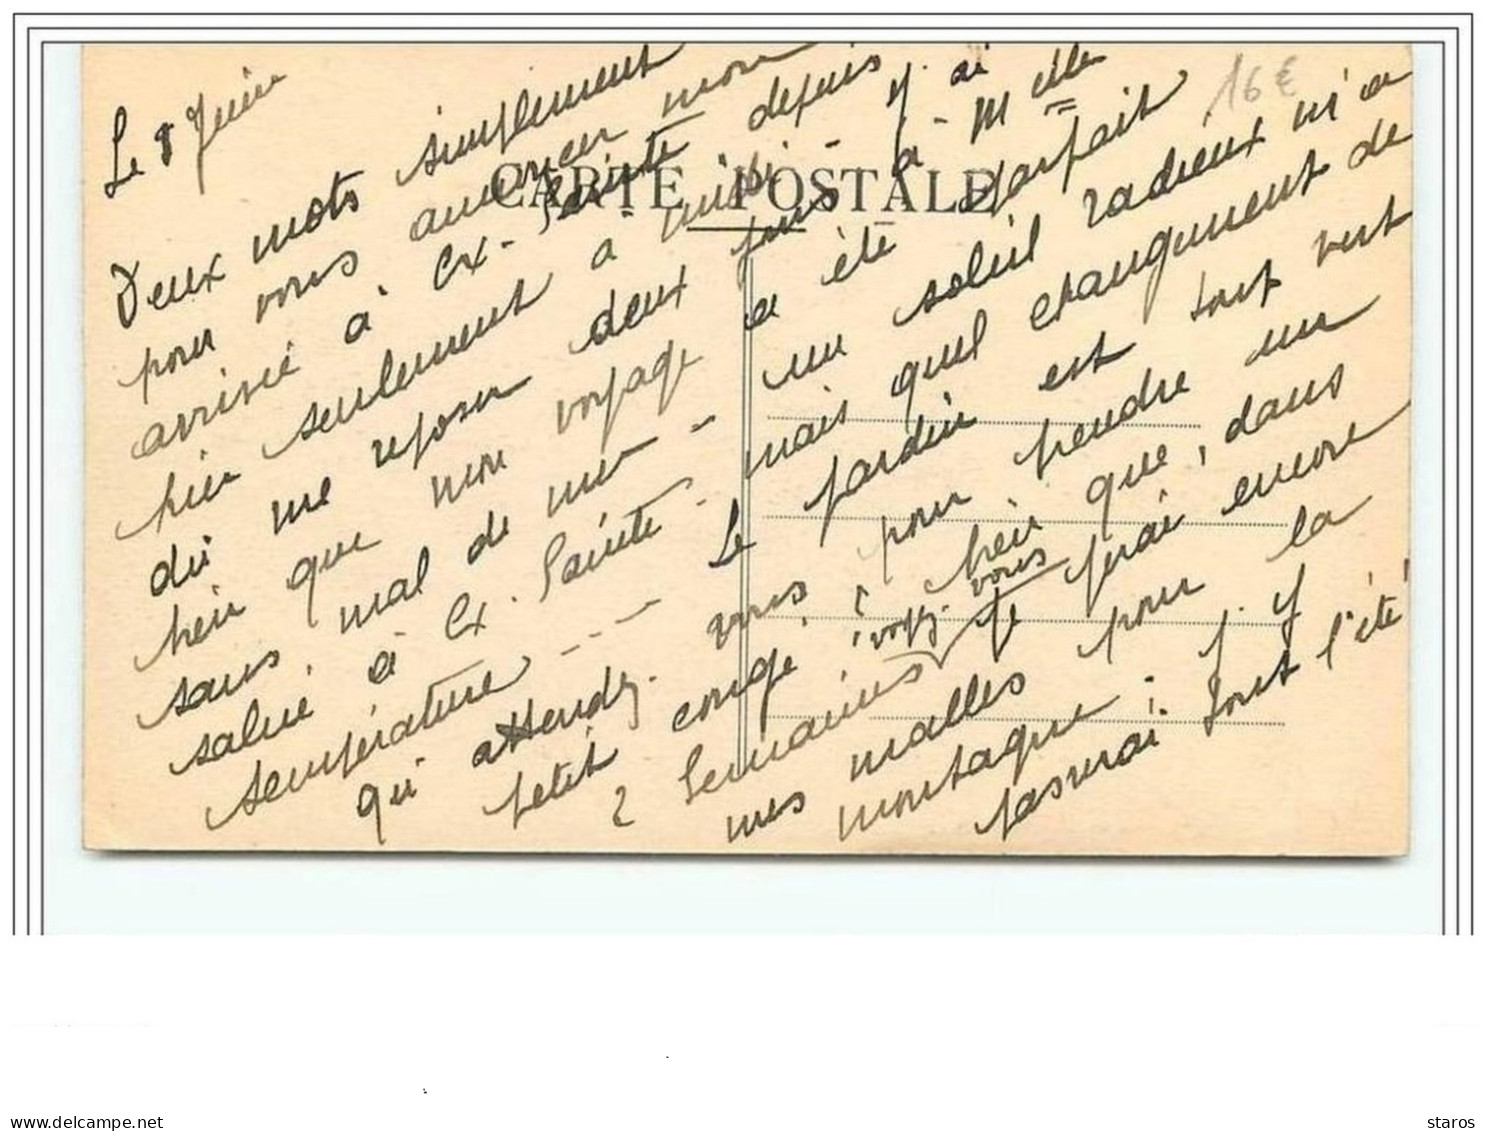 Le 8 Juin
Deux mots simplement
pour vous annoncer mon
arrivée à Ex-Sainte depuis
hier seulement à midi - j'ai
dû me reposer deux jours à - Melle
hein que mon voyage a été parfait
sans mal de mer - un soleil radieux m'a
salué à Ex. Sainte - mais quel changement de
température - - - Le jardin est tout vert
qu'attendez-vous pour prendre un
petit congé? hein que, dans
2 semaines, voyez-vous je ferai encore
mes malles pour la
montagne: j'y
passerai tout l'été!
CARTE POSTALE
16€
www.delcampe.net
staros